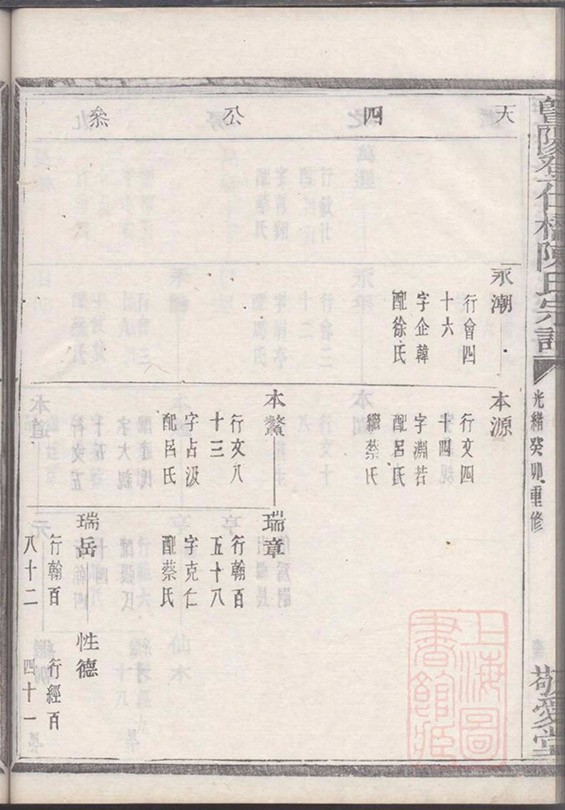 暨陽孝仁橋陳氏宗譜
光緒癸卯重修
敬愛堂
天四公叅
永潮
行會四
十六
字企韓
配徐氏
本源
行文四
十四
字淵若
配呂氏
繼蔡氏
本鰲
行文八
十三
字占汲
配呂氏
瑞章
行翰百
五十八
字克仁
配蔡氏
瑞岳
行翰百
八十二
性德
行經百
四十一
上海圖
書館藏